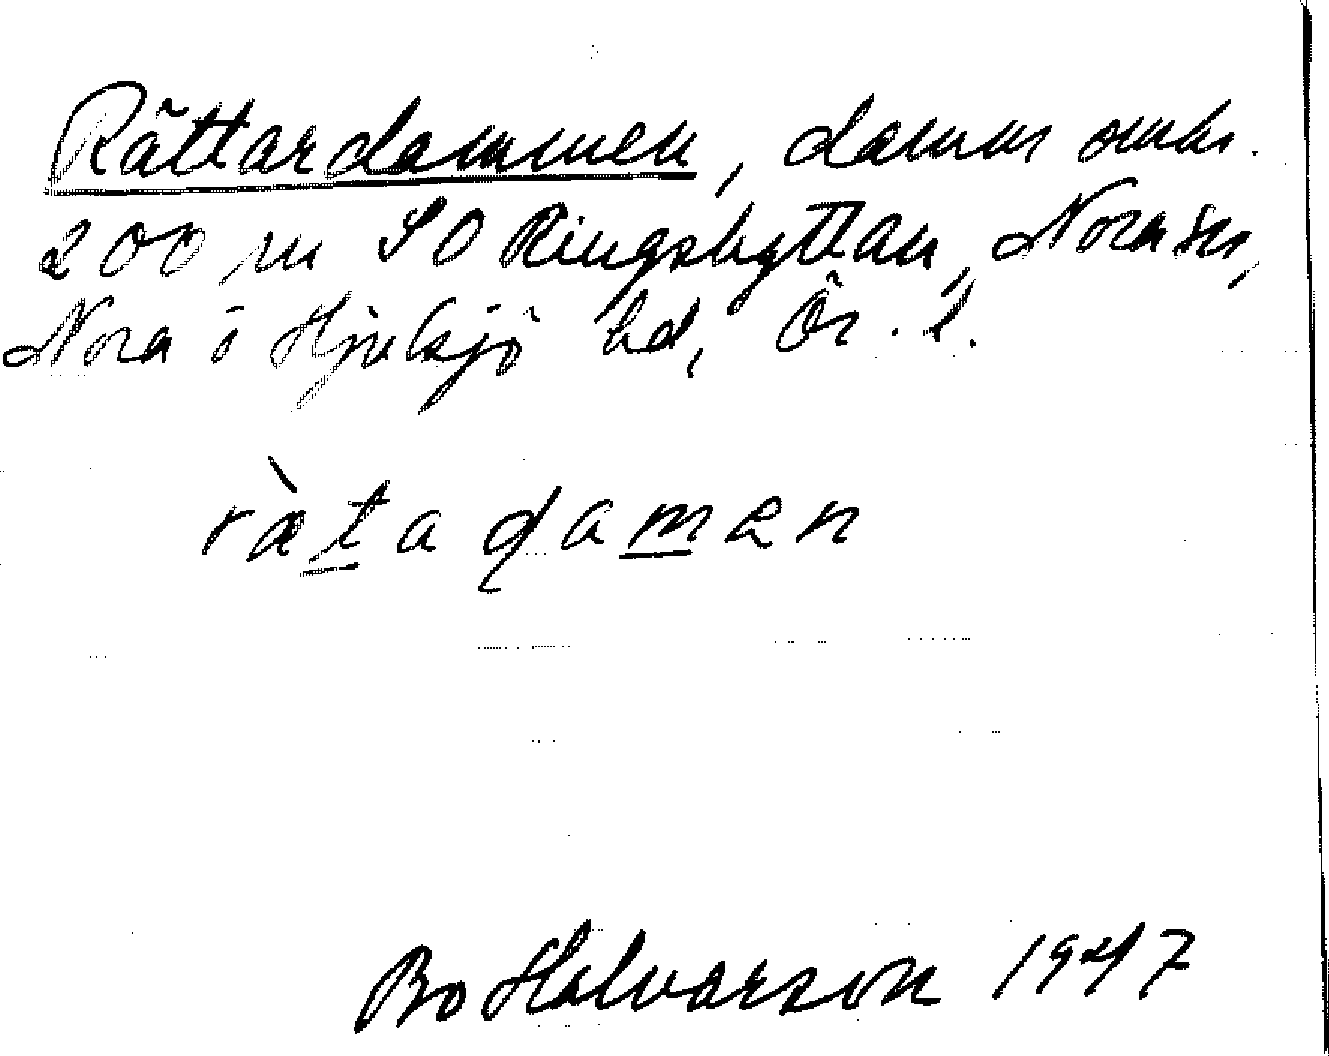 Rättardammen, damm omkr.
200 m SO Ringshyttan, Nora sn,
Nora o Hjulsjö hd, Ör. l.
ràtadamen
Bo Halvarson 1947